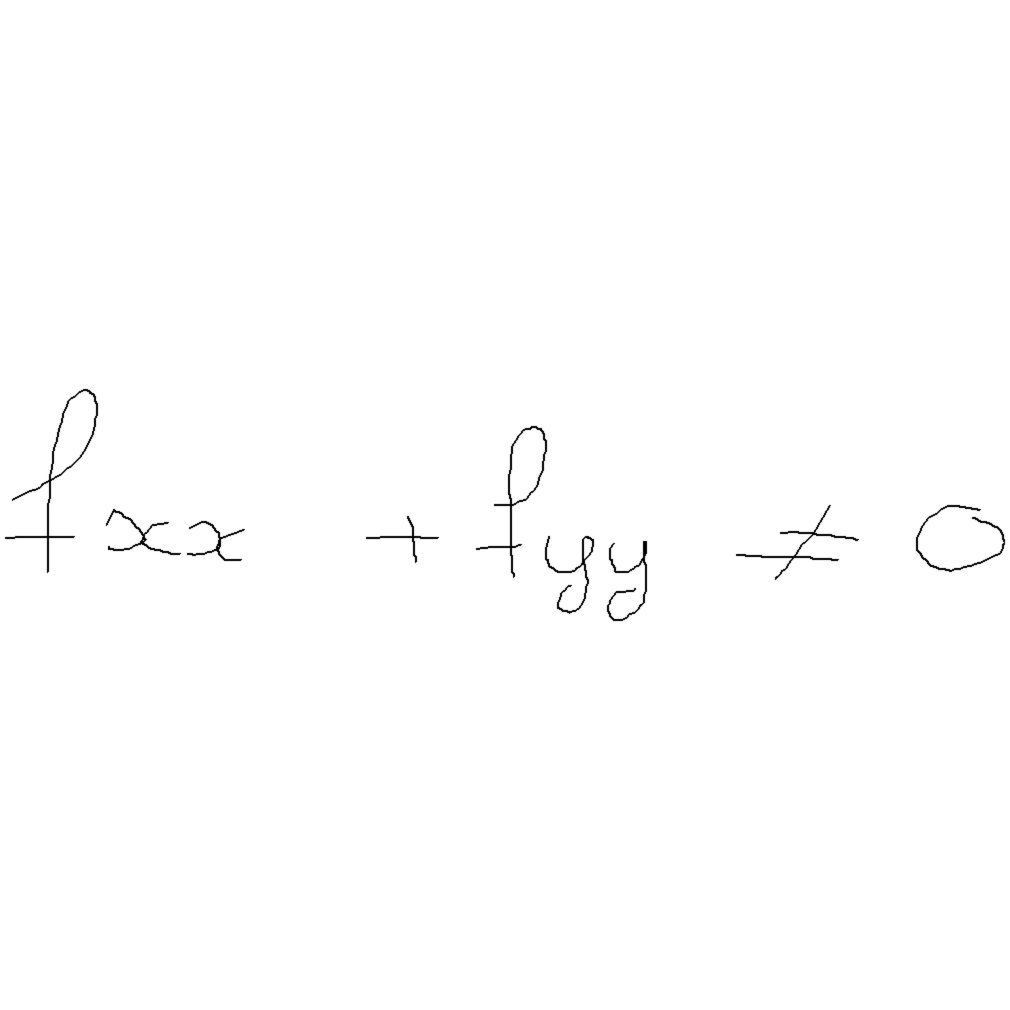 fxx + fyy ≠ 0